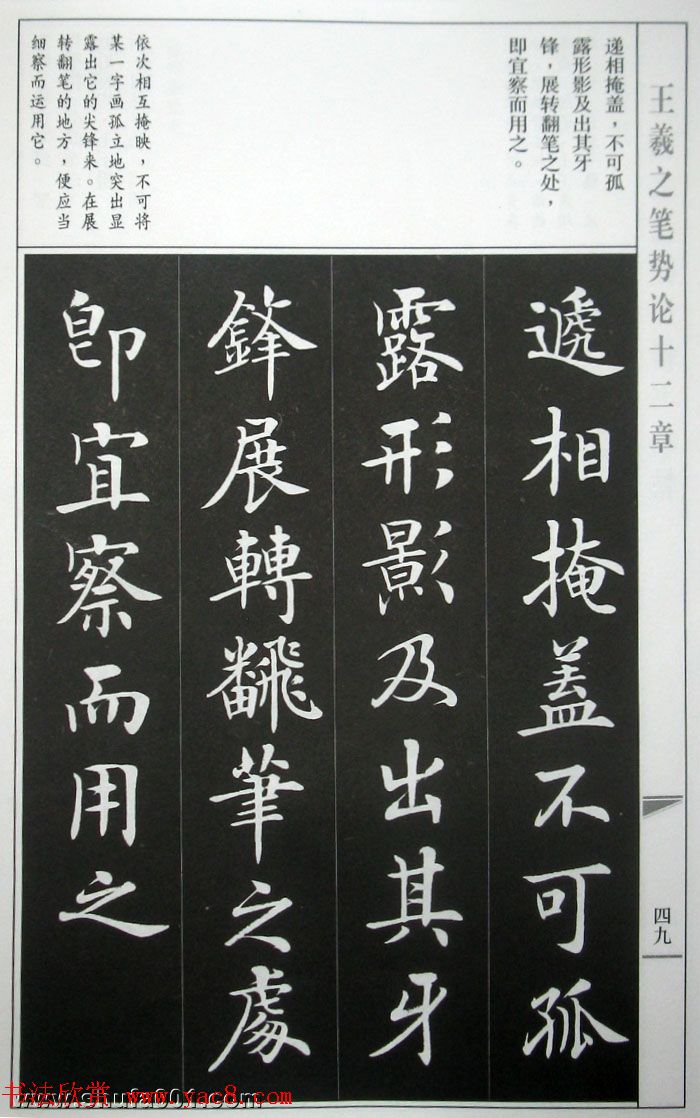 王羲之笔势论十二章
四九
递相掩盖，不可孤
露形影及出其牙
锋，展转翻笔之处，
即宜察而用之。
依次相互掩映，不可将
某一字画孤立地突出显
露出它的尖锋来。在展
转翻笔的地方，便应当
细察而运用它。
遞相掩盖不可孤
露形影及出其牙
鋒展轉飜筆之處
即宜察而用之
书法欣赏 www.yac8.com